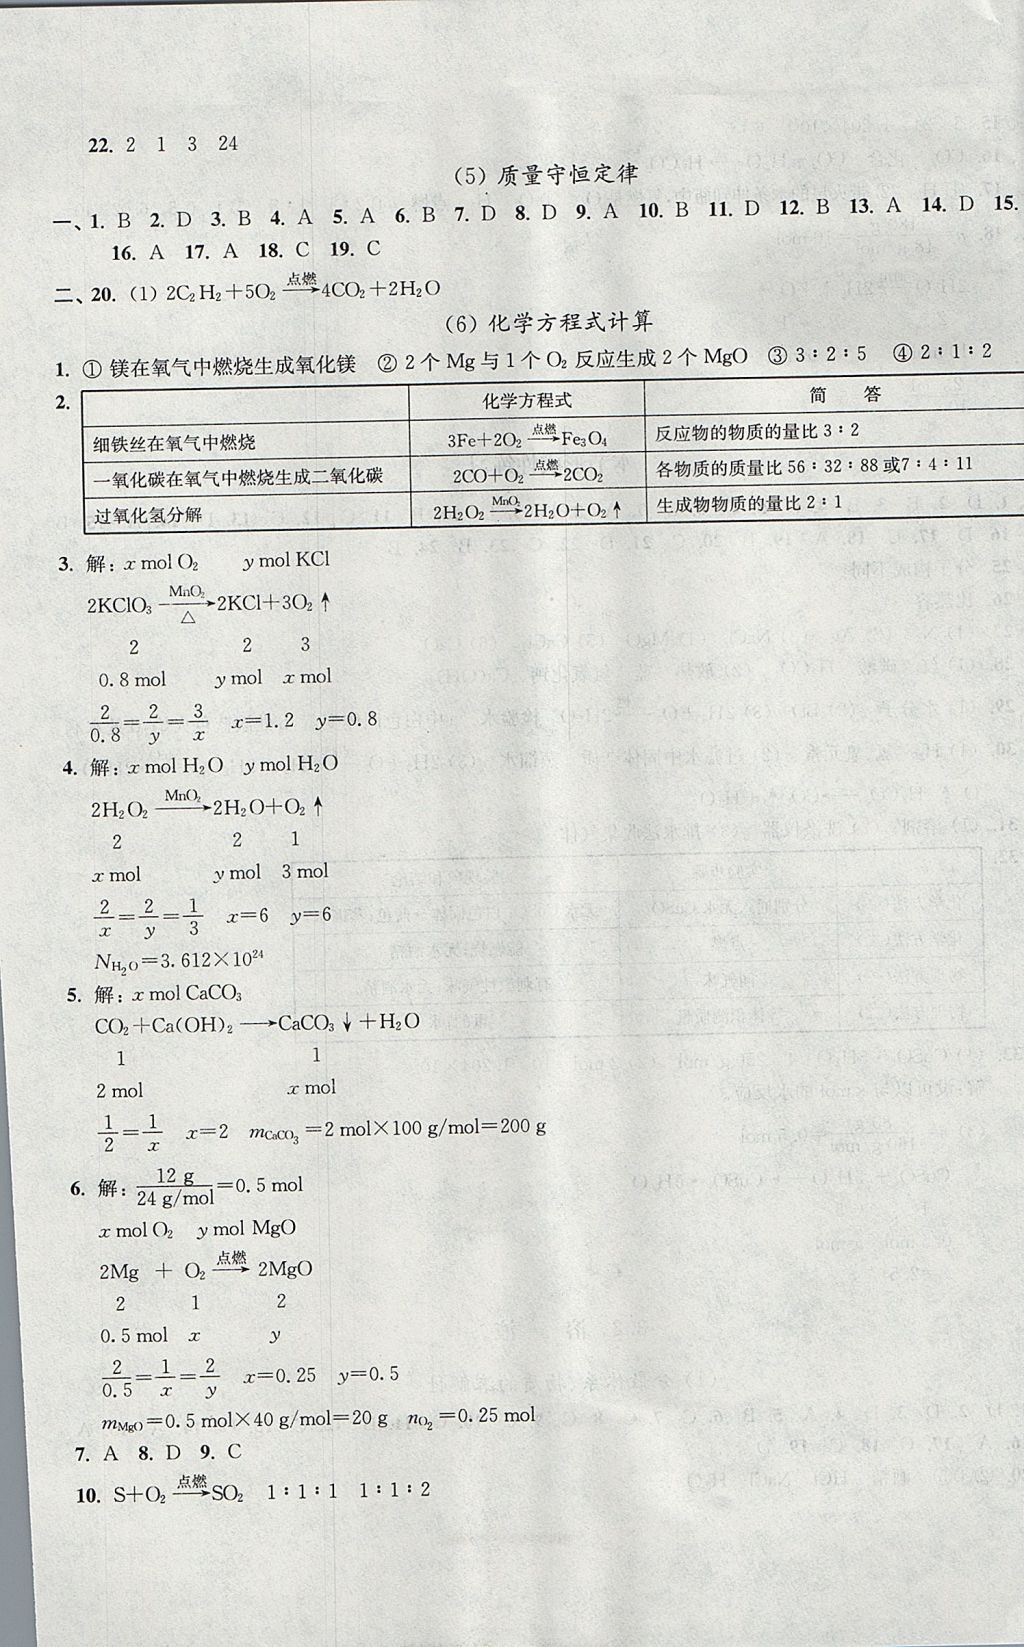 22. 2 1 3 24
(5) 质量守恒定律
一、1. B 2. D 3. B 4. A 5. A 6. B 7. D 8. D 9. A 10. B 11. D 12. B 13. A 14. D 15.
16. A 17. A 18. C 19. C
二、20. (1) 2C₂H₂+5O₂ —点燃→ 4CO₂+2H₂O
(6) 化学方程式计算
1. ① 镁在氧气中燃烧生成氧化镁 ② 2个Mg与1个O₂反应生成2个MgO ③ 3∶2∶5 ④ 2∶1∶2
2. 化学方程式 简 答
细铁丝在氧气中燃烧 3Fe+2O₂ —点燃→ Fe₃O₄ 反应物的物质的量比3∶2
一氧化碳在氧气中燃烧生成二氧化碳 2CO+O₂ —点燃→ 2CO₂ 各物质的质量比56∶32∶88或7∶4∶11
过氧化氢分解 2H₂O₂ —MnO₂→ 2H₂O+O₂↑ 生成物物质的量比2∶1
3. 解: x mol O₂ y mol KCl
2KClO₃ —MnO₂/△→ 2KCl+3O₂↑
2 2 3
0.8 mol y mol x mol
2/0.8=2/y=3/x x=1.2 y=0.8
4. 解: x mol H₂O y mol H₂O
2H₂O₂ —MnO₂→ 2H₂O+O₂↑
2 2 1
x mol y mol 3 mol
2/x=2/y=1/3 x=6 y=6
N_H₂O=3.612×10²⁴
5. 解: x mol CaCO₃
CO₂+Ca(OH)₂ —→ CaCO₃↓+H₂O
1 1
2 mol x mol
1/2=1/x x=2 m_CaCO₃=2 mol×100 g/mol=200 g
6. 解: 12 g/24 g/mol=0.5 mol
x mol O₂ y mol MgO
2Mg + O₂ —点燃→ 2MgO
2 1 2
0.5 mol x y
2/0.5=1/x=2/y x=0.25 y=0.5
m_MgO=0.5 mol×40 g/mol=20 g n_O₂=0.25 mol
7. A 8. D 9. C
10. S+O₂ —点燃→ SO₂ 1∶1∶1 1∶1∶2